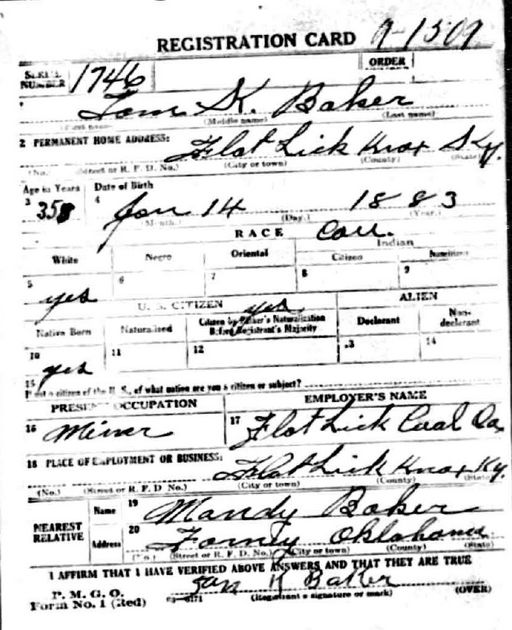 REGISTRATION CARD 9-1509
SERIAL NUMBER 1746 ORDER
1 Tom K. Baker
(First name) (Middle name) (Last name)
2 PERMANENT HOME ADDRESS: Flat Lick Knox Ky.
(No.) (Street or R. F. D. No.) (City or town) (County) (State)
Age in Years Date of Birth
3 35 4 Jan 14 1883
(Month.) (Day.) (Year.)
RACE Cau.
White Negro Oriental Indian
Citizen Noncitizen
5 6 7 8 9
yes
U. S. CITIZEN yes ALIEN
Native Born Naturalized Citizen by Father's Naturalization Before Registrant's Majority Declarant Non-declarant
10 11 12 13 14
yes
15 If not a citizen of the U. S., of what nation are you a citizen or subject?
PRESENT OCCUPATION EMPLOYER'S NAME
16 Miner 17 Flat Lick Coal Co
18 PLACE OF EMPLOYMENT OR BUSINESS: Flat Lick Knox Ky.
(No.) (Street or R. F. D. No.) (City or town) (County) (State)
NEAREST RELATIVE Name 19 Mandy Baker
Address 20 Forney Oklahoma
(No.) (Street or R. F. D. No.) (City or town) (County) (State)
I AFFIRM THAT I HAVE VERIFIED ABOVE ANSWERS AND THAT THEY ARE TRUE
P. M. G. O.
Form No. 1 (Red) K Baker
(Registrant's signature or mark) (OVER)